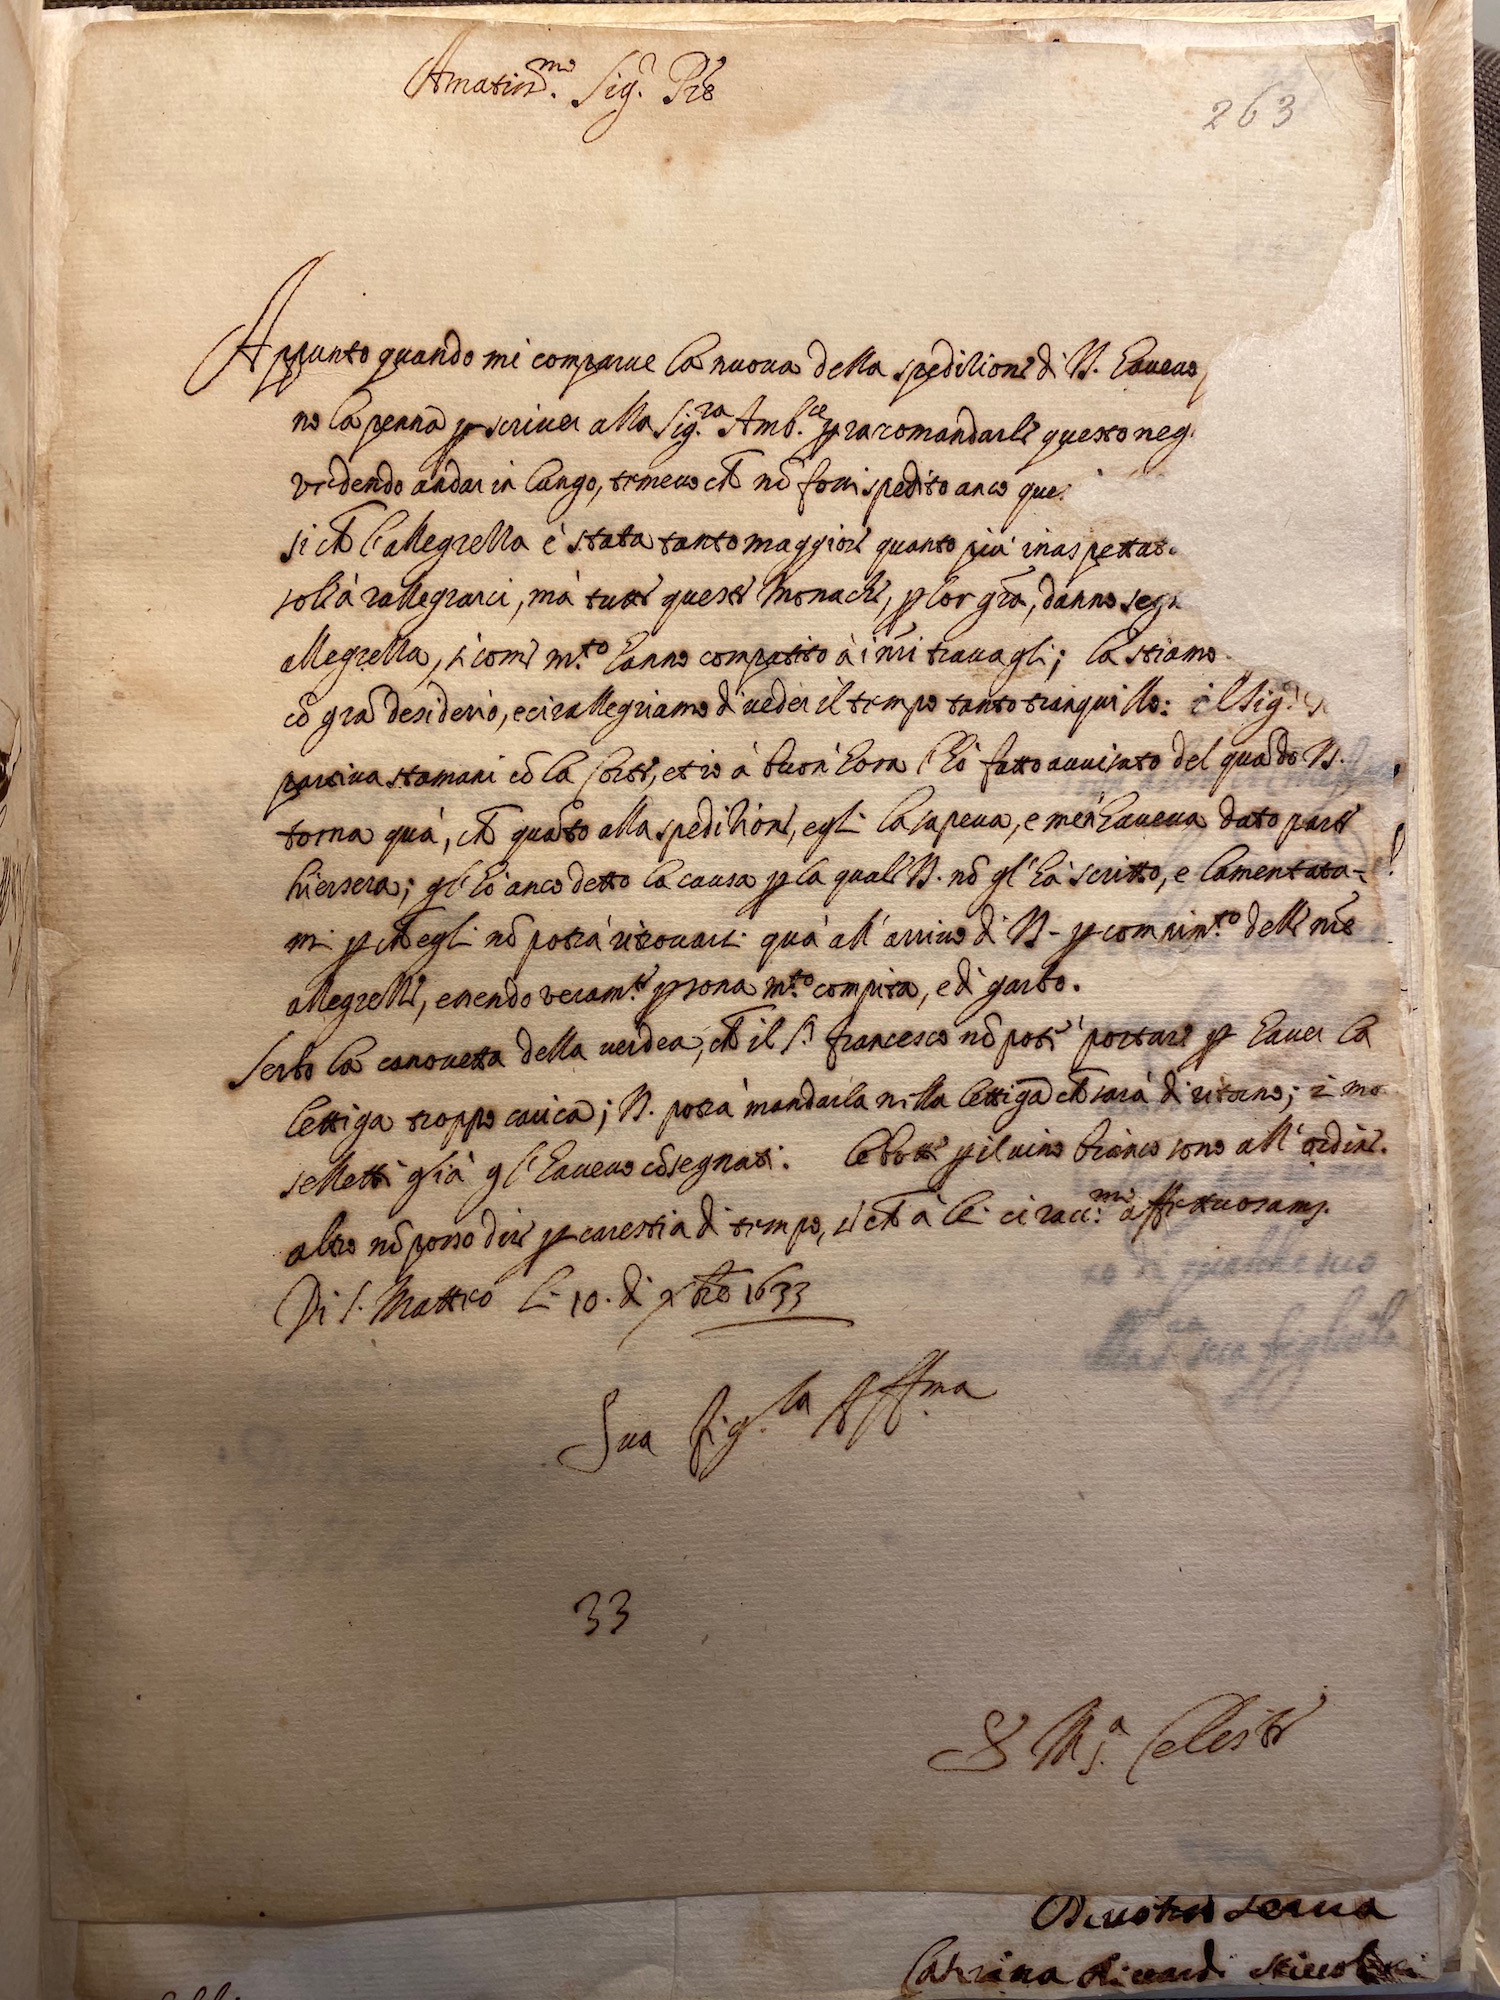 Amatiss.mo Sig.r P̃re
263
Appunto quando mi comparue la nuoua della spedizione di V.S. haueuo
no la penna p scriuer alla Sig.ra Amb.ce p racomandarle questo neg.
vedendo andar in lungo, temeuo ch̃ nõ fossi spedito anco que
si ch̃ l'allegrezza è stata tanto maggiore quanto più inaspettat
soli à rallegrarci, mà tutte queste Monache, p lor grã, danno segn
allegrezza, si come m.to hanno compatito à i mei trauagli; la stiamo
cõ grã desiderio, e ci rallegriamo di ueder il tempo tanto tranquillo: il Sig.r
partiua stamani cõ la Corte, et io à buon'hora l'hò fatto auuisato del quãdo V.S.
torna quà, ch̃ quãto alla spedizione, egli la sapeua, e men'haueua dato parte
hiersera; gl'hò anco detto la causa p la quale V.S. nõ gl'hà scritto, e lamentata-
mi p ch̃ egli nõ potrà ritrouarsi quà all'arriuo di V.S. p compim.to delle nr̃e
allegrezze, essendo veram.te p̱sona m.to compita, e di garbo.
Serbo la canouetta della uerdea, ch̃ il S.r francesco nõ potè portare p hauer la
lettiga troppo carica; V.S. potrà mandarla nella lettiga ch̃ sarà di ritorno; i mor
selletti già gl'haueuo cõsegnati. le botti p il uino bianco sono all'ordine.
altro nõ posso dire p carestia di tempo, si ch̃ à lei ci racc.mo affettuosam.
Di S. Matteo li 10. di Xbre 1633
Sua fig.la Aff.ma
33
S. M.a Celeste
Deuotiss serua
Caterina Riccardi Niccolini